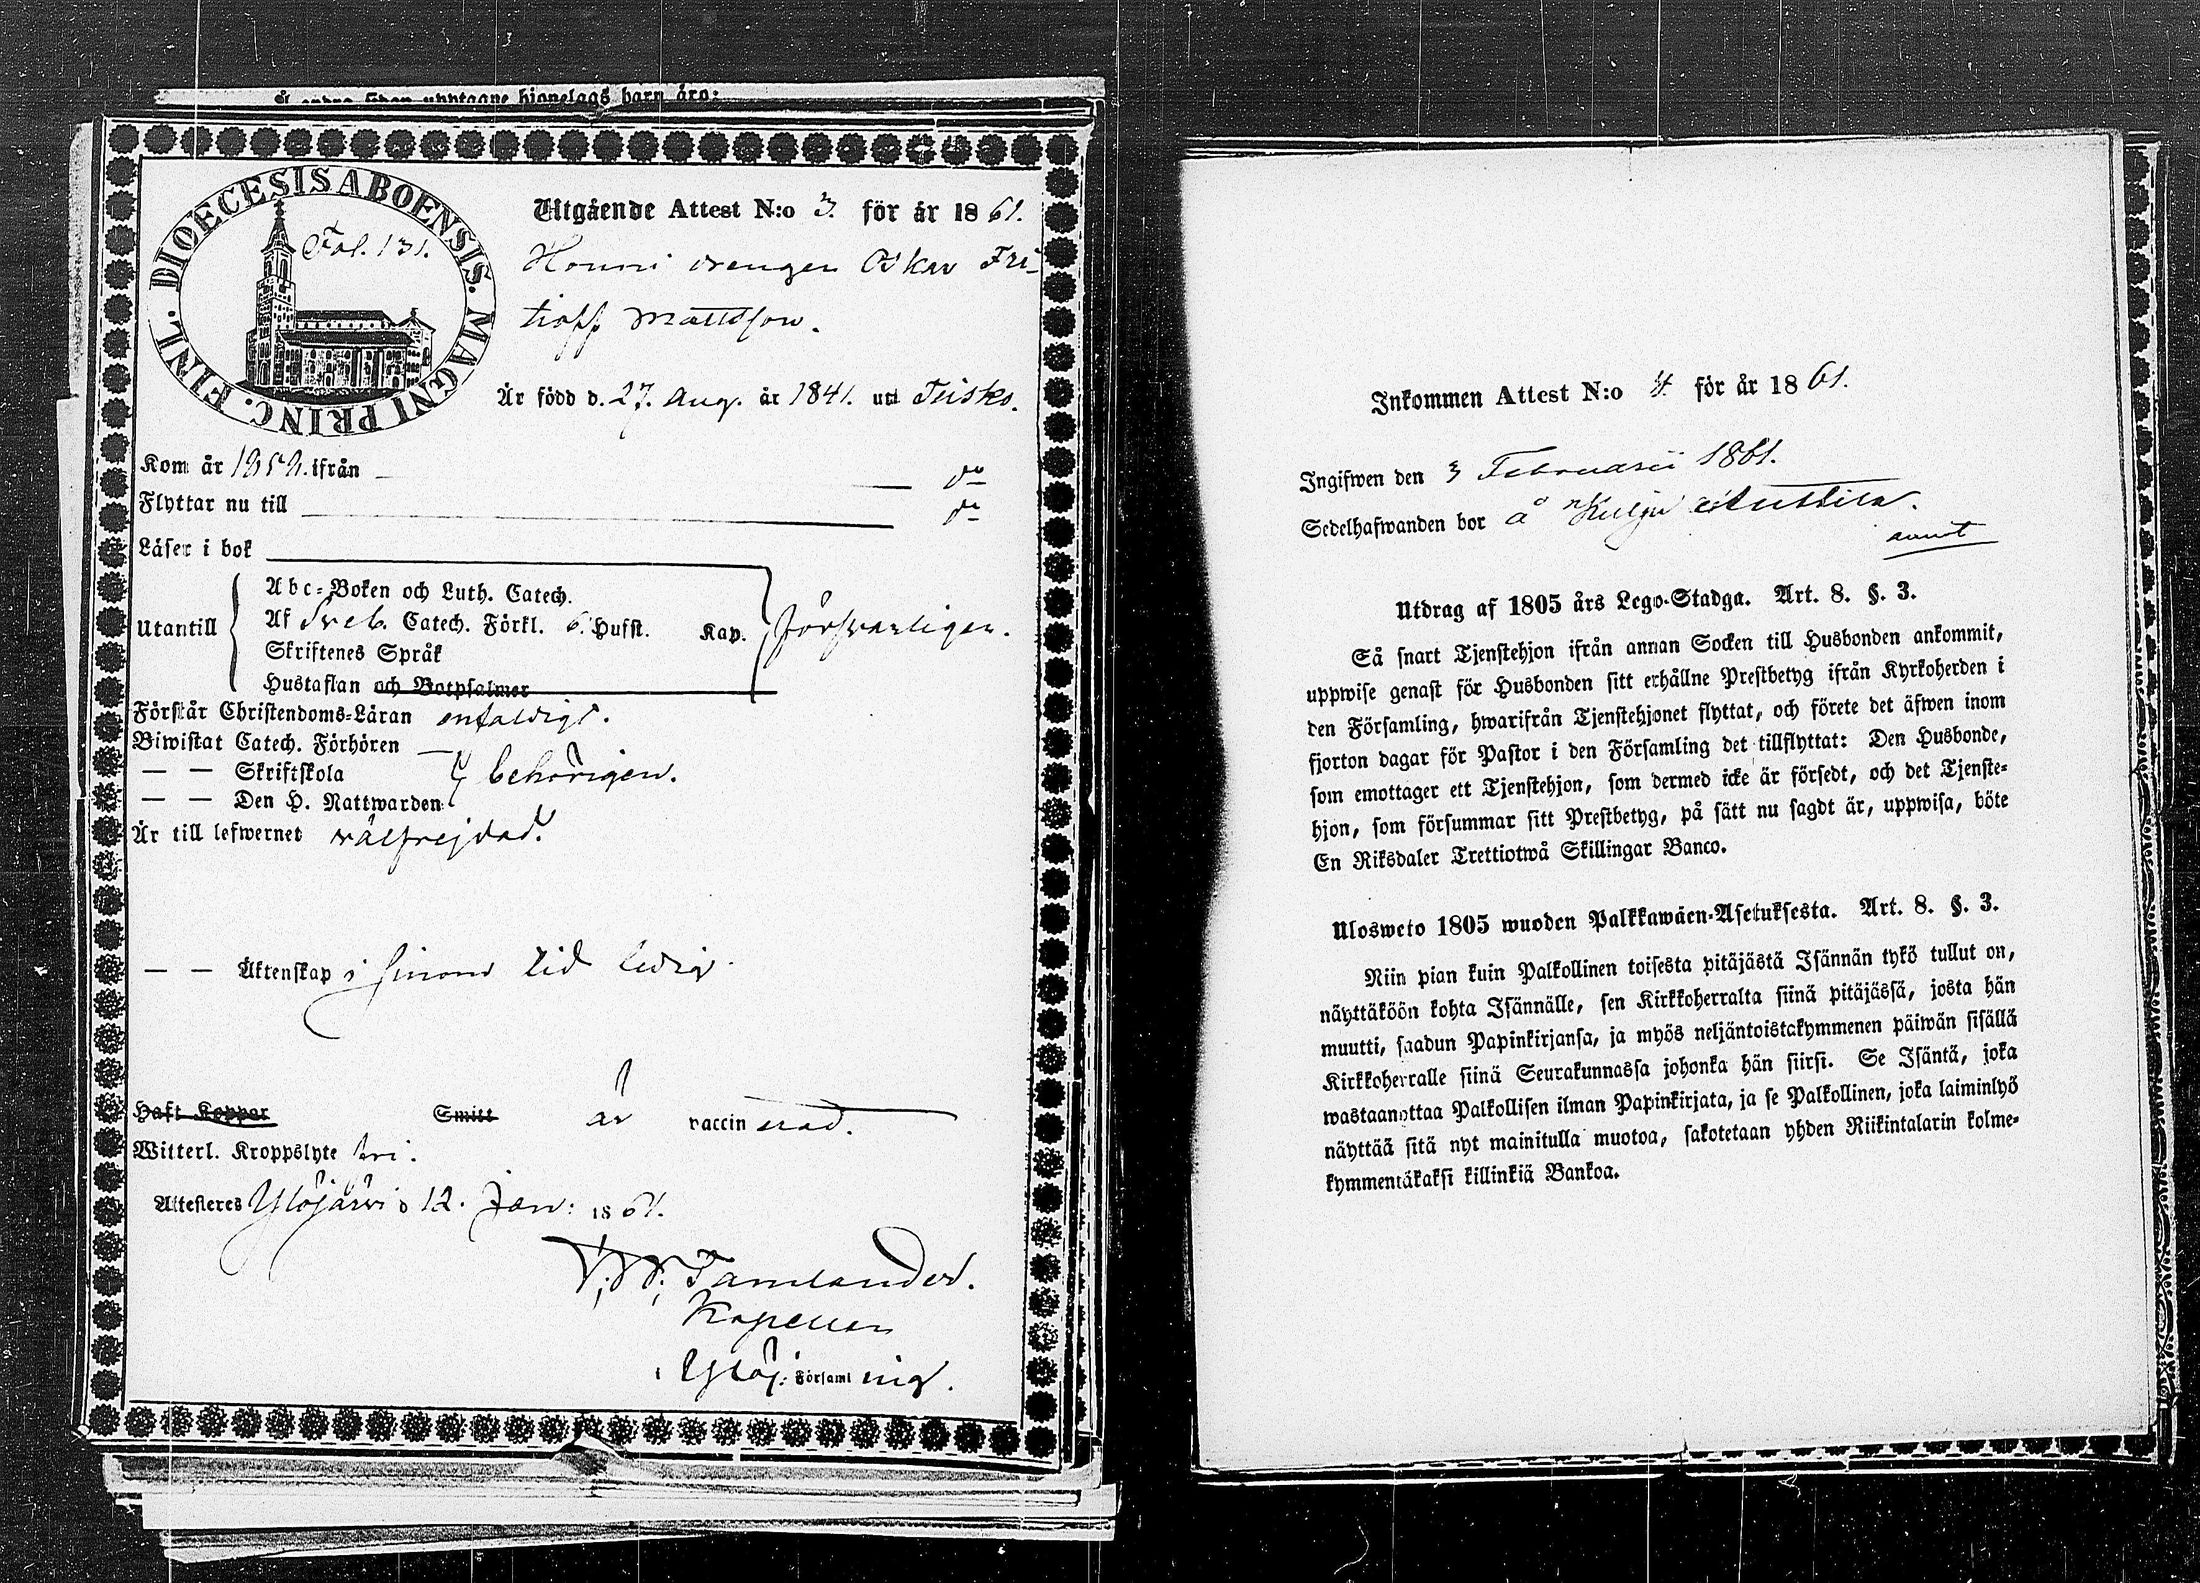 DIOECESIS ABOENSIS. MAGNI PRINC. FINL.
Fol. 131.
Utgående Attest N:o 3. för år 1861.
drengen Oskar Fri-
tioff Mattsson.
Är född d. 27. Aug. år 1841. uti Teisko.
Kom år ifrån — do
Flyttar nu till — do
Läser i bok
Utantill
Abc-Boken och Luth. Catech.
Af Sveb. Catech. Förkl. 6. Hufst. Kap. försvarligen.
Skriftenes Språk
Hustaflan och Botpsalmer
Förstår Christendoms-Läran enfaldigt.
Biwistat Catech. Förhören
— — Skriftskola behörigen.
— — Den H. Nattwarden
Är till lefwernet välfrejdad.
— — Äktenskap i sinom tid ledig.
Haft Koppor Smitt är vaccinerad.
Witterl. Kroppslyte fri.
Attesteres Ylöjärvi d 12. Jan: 1861.
Tamlander.
Kapellan
i Ylöj: Församling.
Inkommen Attest N:o 4. för år 1861.
Ingifwen den 3 Februarii 1861.
Sedelhafwanden bor å Kulju Anttila.
Utdrag af 1805 års Lego-Stadga. Art. 8. §. 3.
Så snart Tjenstehjon ifrån annan Socken till Husbonden ankommit,
uppwise genast för Husbonden sitt erhållne Prestbetyg ifrån Kyrkoherden i
den Församling, hwarifrån Tjenstehjonet flyttat, och förete det äfwen inom
fjorton dagar för Pastor i den Församling det tillflyttat: Den Husbonde,
som emottager ett Tjenstehjon, som dermed icke är försedt, och det Tjenste-
hjon, som försummar sitt Prestbetyg, på sätt nu sagdt är, uppwisa, böte
En Riksdaler Trettiotwå Skillingar Banco.
Ulosweto 1805 wuoden Palkkawäen-Asetuksesta. Art. 8. §. 3.
Niin pian kuin Palkollinen toisesta pitäjästä Isännän tykö tullut on,
näyttäköön kohta Isännälle, sen Kirkkoherralta siinä pitäjässä, josta hän
muutti, saadun Papinkirjansa, ja myös neljäntoistakymmenen päiwän sisällä
Kirkkoherralle siinä Seurakunnassa johonka hän siirsi. Se Isäntä, joka
wastaanottaa Palkollisen ilman Papinkirjata, ja se Palkollinen, joka laiminlyö
näyttää sitä nyt mainitulla muotoa, sakotetaan yhden Riikintalarin kolme-
kymmentäkaksi killinkiä Bankoa.